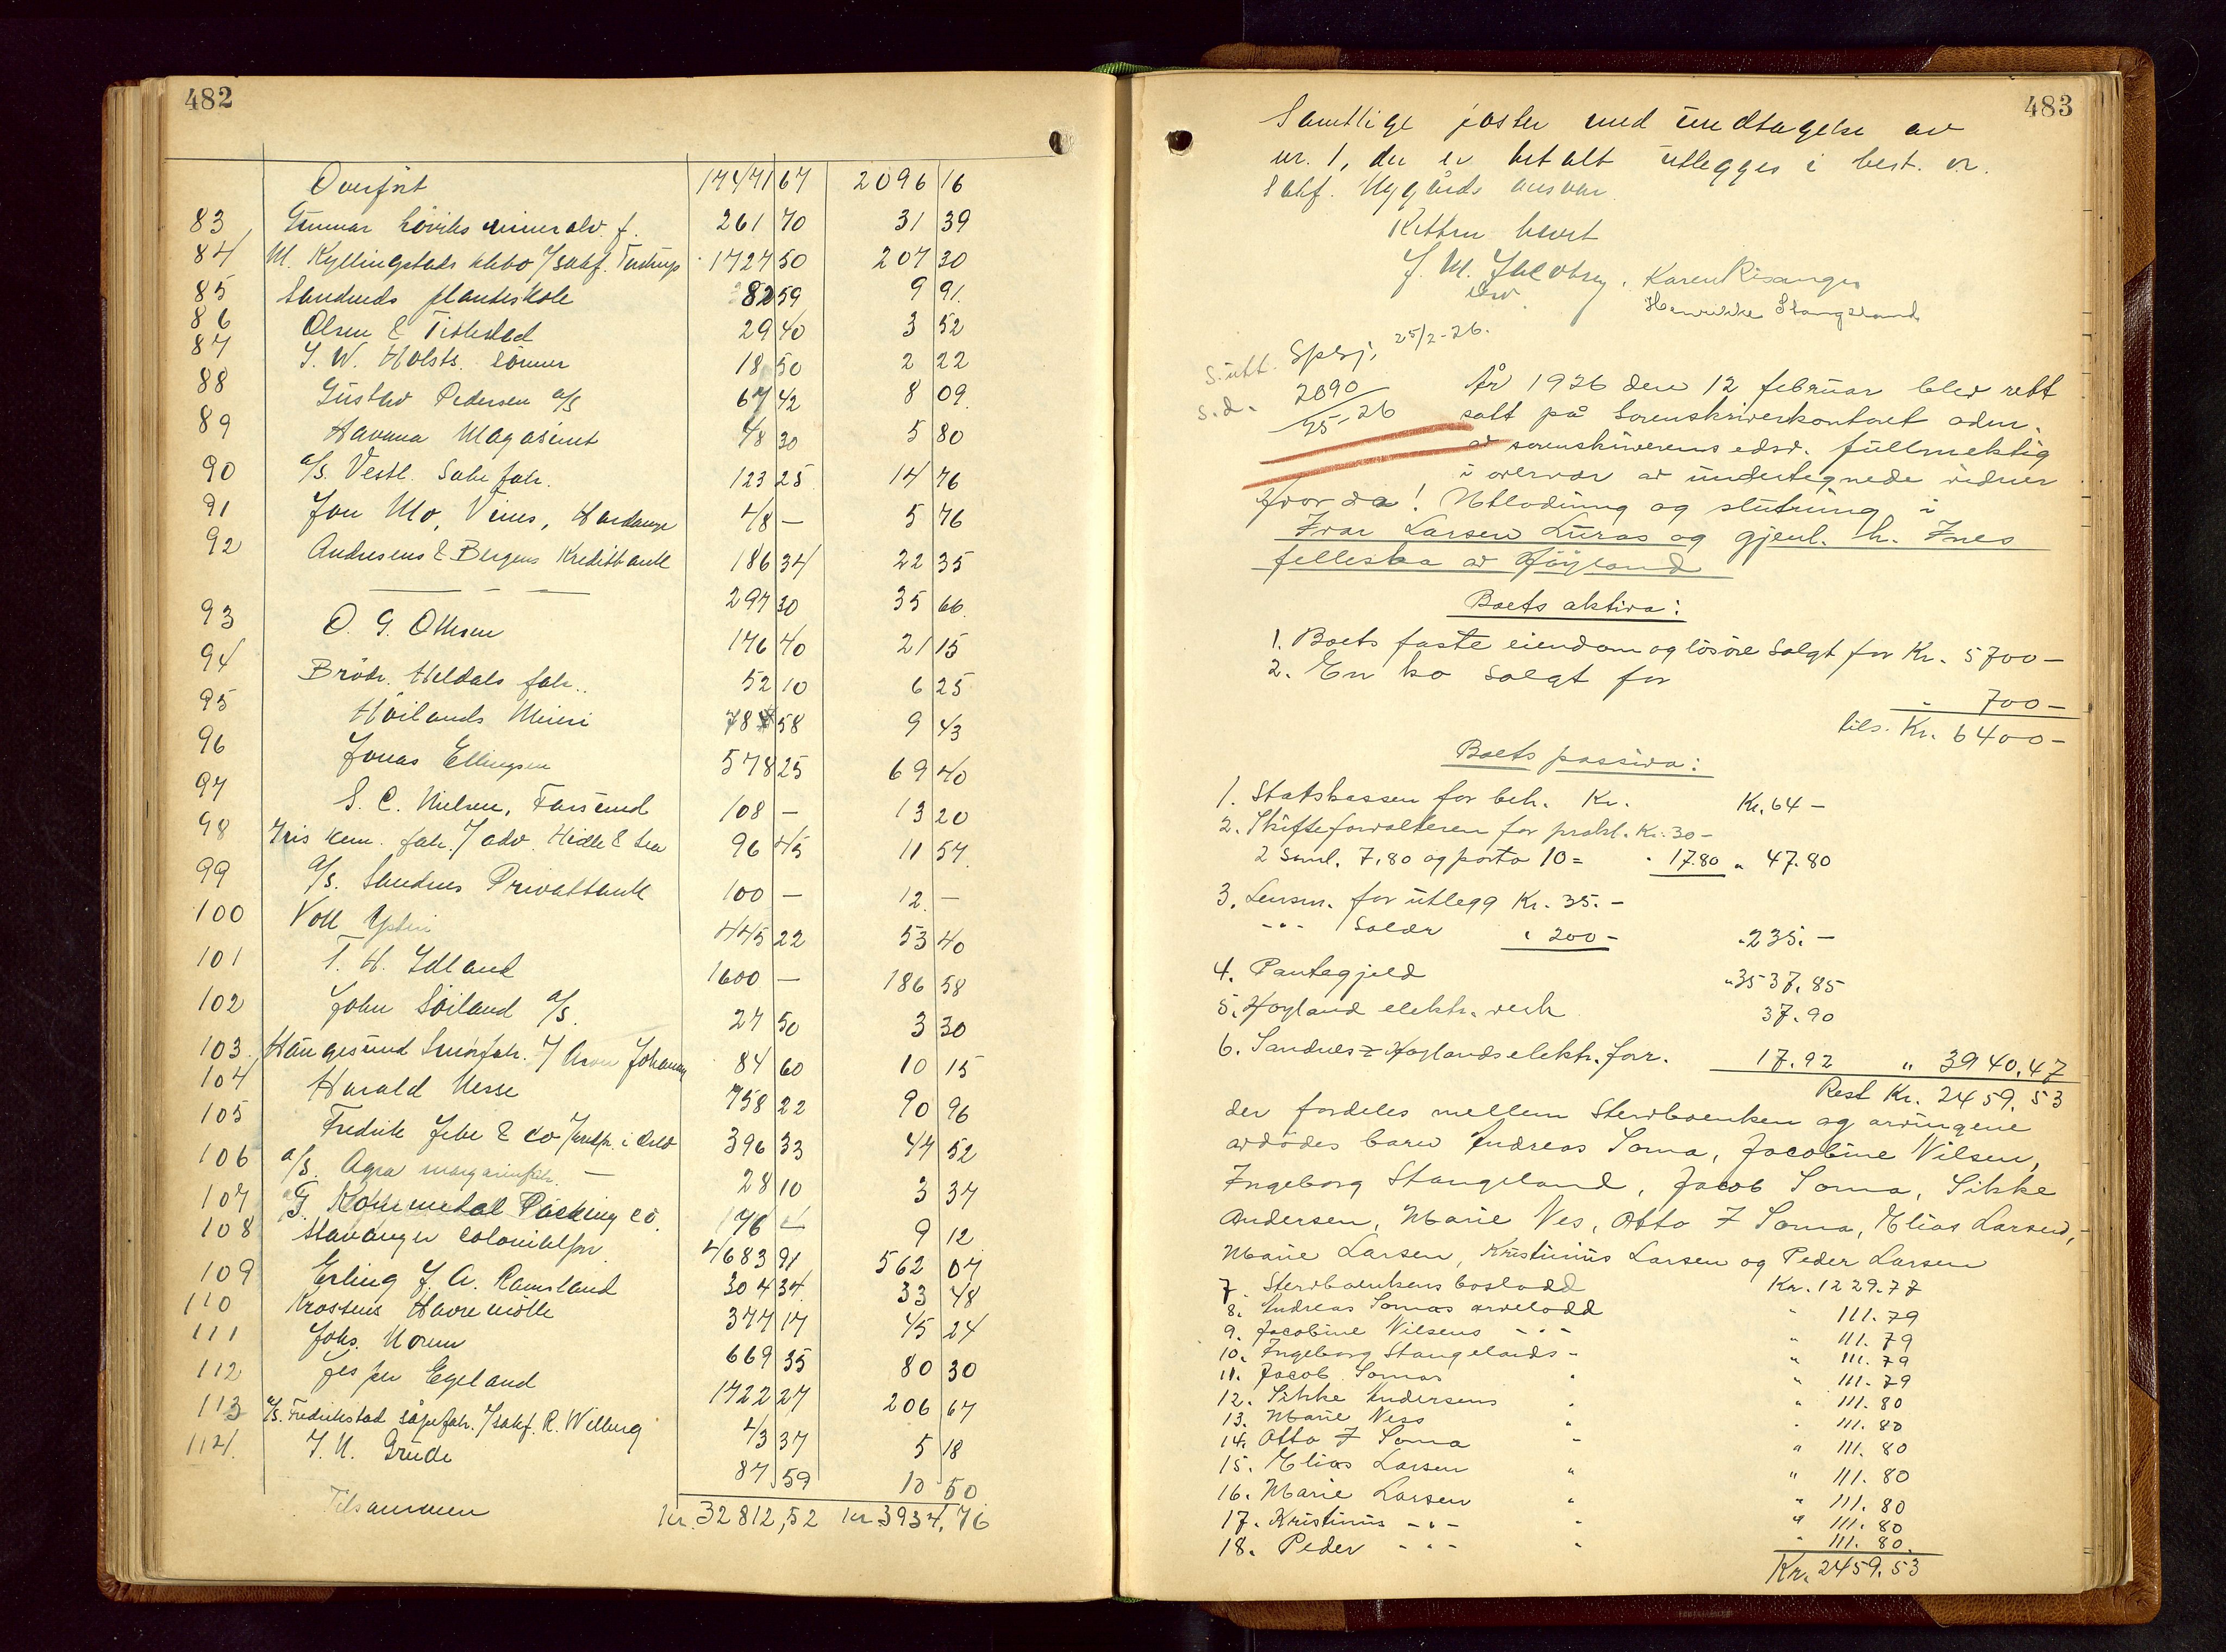 482
Overført 17471 67 2096 16
83 Gunnar Löviks mineralv. f. 261 70 31 39
84 M. Kyllingstads dbbo 1727 50 207 30
85 Sandnes planteskole 82 59 9 91
86 Olsen & Tistedad 29 40 3 52
87 I. W. Holsts. sönner 18 50 2 22
88 Gustav Pedersen a/s 67 42 8 09
89 Havana Magasinet 48 30 5 80
90 a/s. Vestl. Sabr fabr. 123 25 14 76
91 Jon Mo, Vines, Hardanger 48 — 5 76
92 Andresens & Bergens Kreditbank 186 34 22 35
— — — 297 30 35 66
93 O. G. Ottesen 176 40 21 15
94 Brödr. Heldals fabr. 52 10 6 25
95 Höilands Mieri 78 58 9 43
96 Jonas Ellingsen 578 25 69 40
97 S. C. Nielsen, Farsund 108 — 13 20
98 Iris kem. fabr. / adv. Hidle & Lea 96 45 11 57
99 a/s. Sandnes Privatbank 100 — 12 —
100 Voll Ysteri 445 22 53 40
101 T. H. Idland 1600 — 186 58
102 John Söiland a/s. 27 50 3 30
103 Haugesund Smörfabr. 84 60 10 15
104 Harald Nesse 758 22 90 96
105 Fredrik Jebe & Co 396 33 47 52
106 a/s. Agra margarinfabr. — 28 10 3 37
107 Kohrmetal Packing Co. 176 — 9 12
108 Stavanger Colonialforr. 4683 91 562 07
109 Erling J. A. Ramsland 304 34 33 48
110 Krossens Havremölle 377 17 45 24
111 Johs. Noren 669 35 80 30
112 Jesper Egeland 1722 27 206 67
113 a/s. Fredrikstad såpefabr. / sakf. R. Willberg 43 37 5 18
114. T. N. Grude 87 59 10 50
Tilsammen kr. 32812,52 kr. 3934,76
483
Samtlige poster med undtagelse av
nr. 1, der er betalt utlegges i best. or.
Sakf. Nygårds ansvar
Retten hevet
Karen Risanger
Henrikke Stangeland
S. utt. Spesj. 25/2-26.
s.d. 2090
25-26
År 1926 den 12 februar blev rett
satt på Sorenskriverkontoret adm.
av sorenskriverens edsv. fullmektig
i overvær av undertegnede vidner
Hvorda! Utlodning og slutning i
Ivar Larsen Luras og gjenl. h. Ines
fellesbo av Høyland
Boets aktiva:
1. Boets faste eiendom og lösöre solgt for Kr. 5700 —
2. En ko solgt for - 700 —
tils. Kr. 6400 —
Boets passiva:
1. Statskassen for beh. Kr. Kr. 64 —
2. Skifteforvalteren for prokl. Kr. 30 —
2 Saml. 7.80 og porto 10 = " 17.80 " 47.80
3. Lensm. for utlegg Kr. 35. —
-"- Salær " 200 — " 235. —
4. Pantegjeld " 3537.85
5. Høyland elektr. verk 37.90
6. Sandnes - Høylands elektr. forr. 17.92 " 3940.47
Rest Kr. 2459.53
der fordeles mellem Stervboenken og arvingene
avdødes barn Andreas Soma, Jacobine Nilsen,
Ingeborg Stangeland, Jacob Soma, Sikke
Andersen, Marie Nes, Otto I Soma, Elias Larsen,
Marie Larsen, Kristinius Larsen og Peder Larsen
7. Stervboenkens boslodd Kr. 1229.77
8. Andreas Somas arvelodd " 111.79
9. Jacobine Nilsens -"- " 111.79
10. Ingeborg Stangelands - " 111.79
11. Jacob Somas " " 111.79
12. Sikke Andersens " " 111.80
13. Marie Ness " " 111.80
14. Otto I Soma - " 111.80
15. Elias Larsen " " 111.80
16. Marie Larsen " " 111.80
17. Kristinius -"- " " 111.80
18. Peder -"- " " 111.80.
Kr. 2459.53